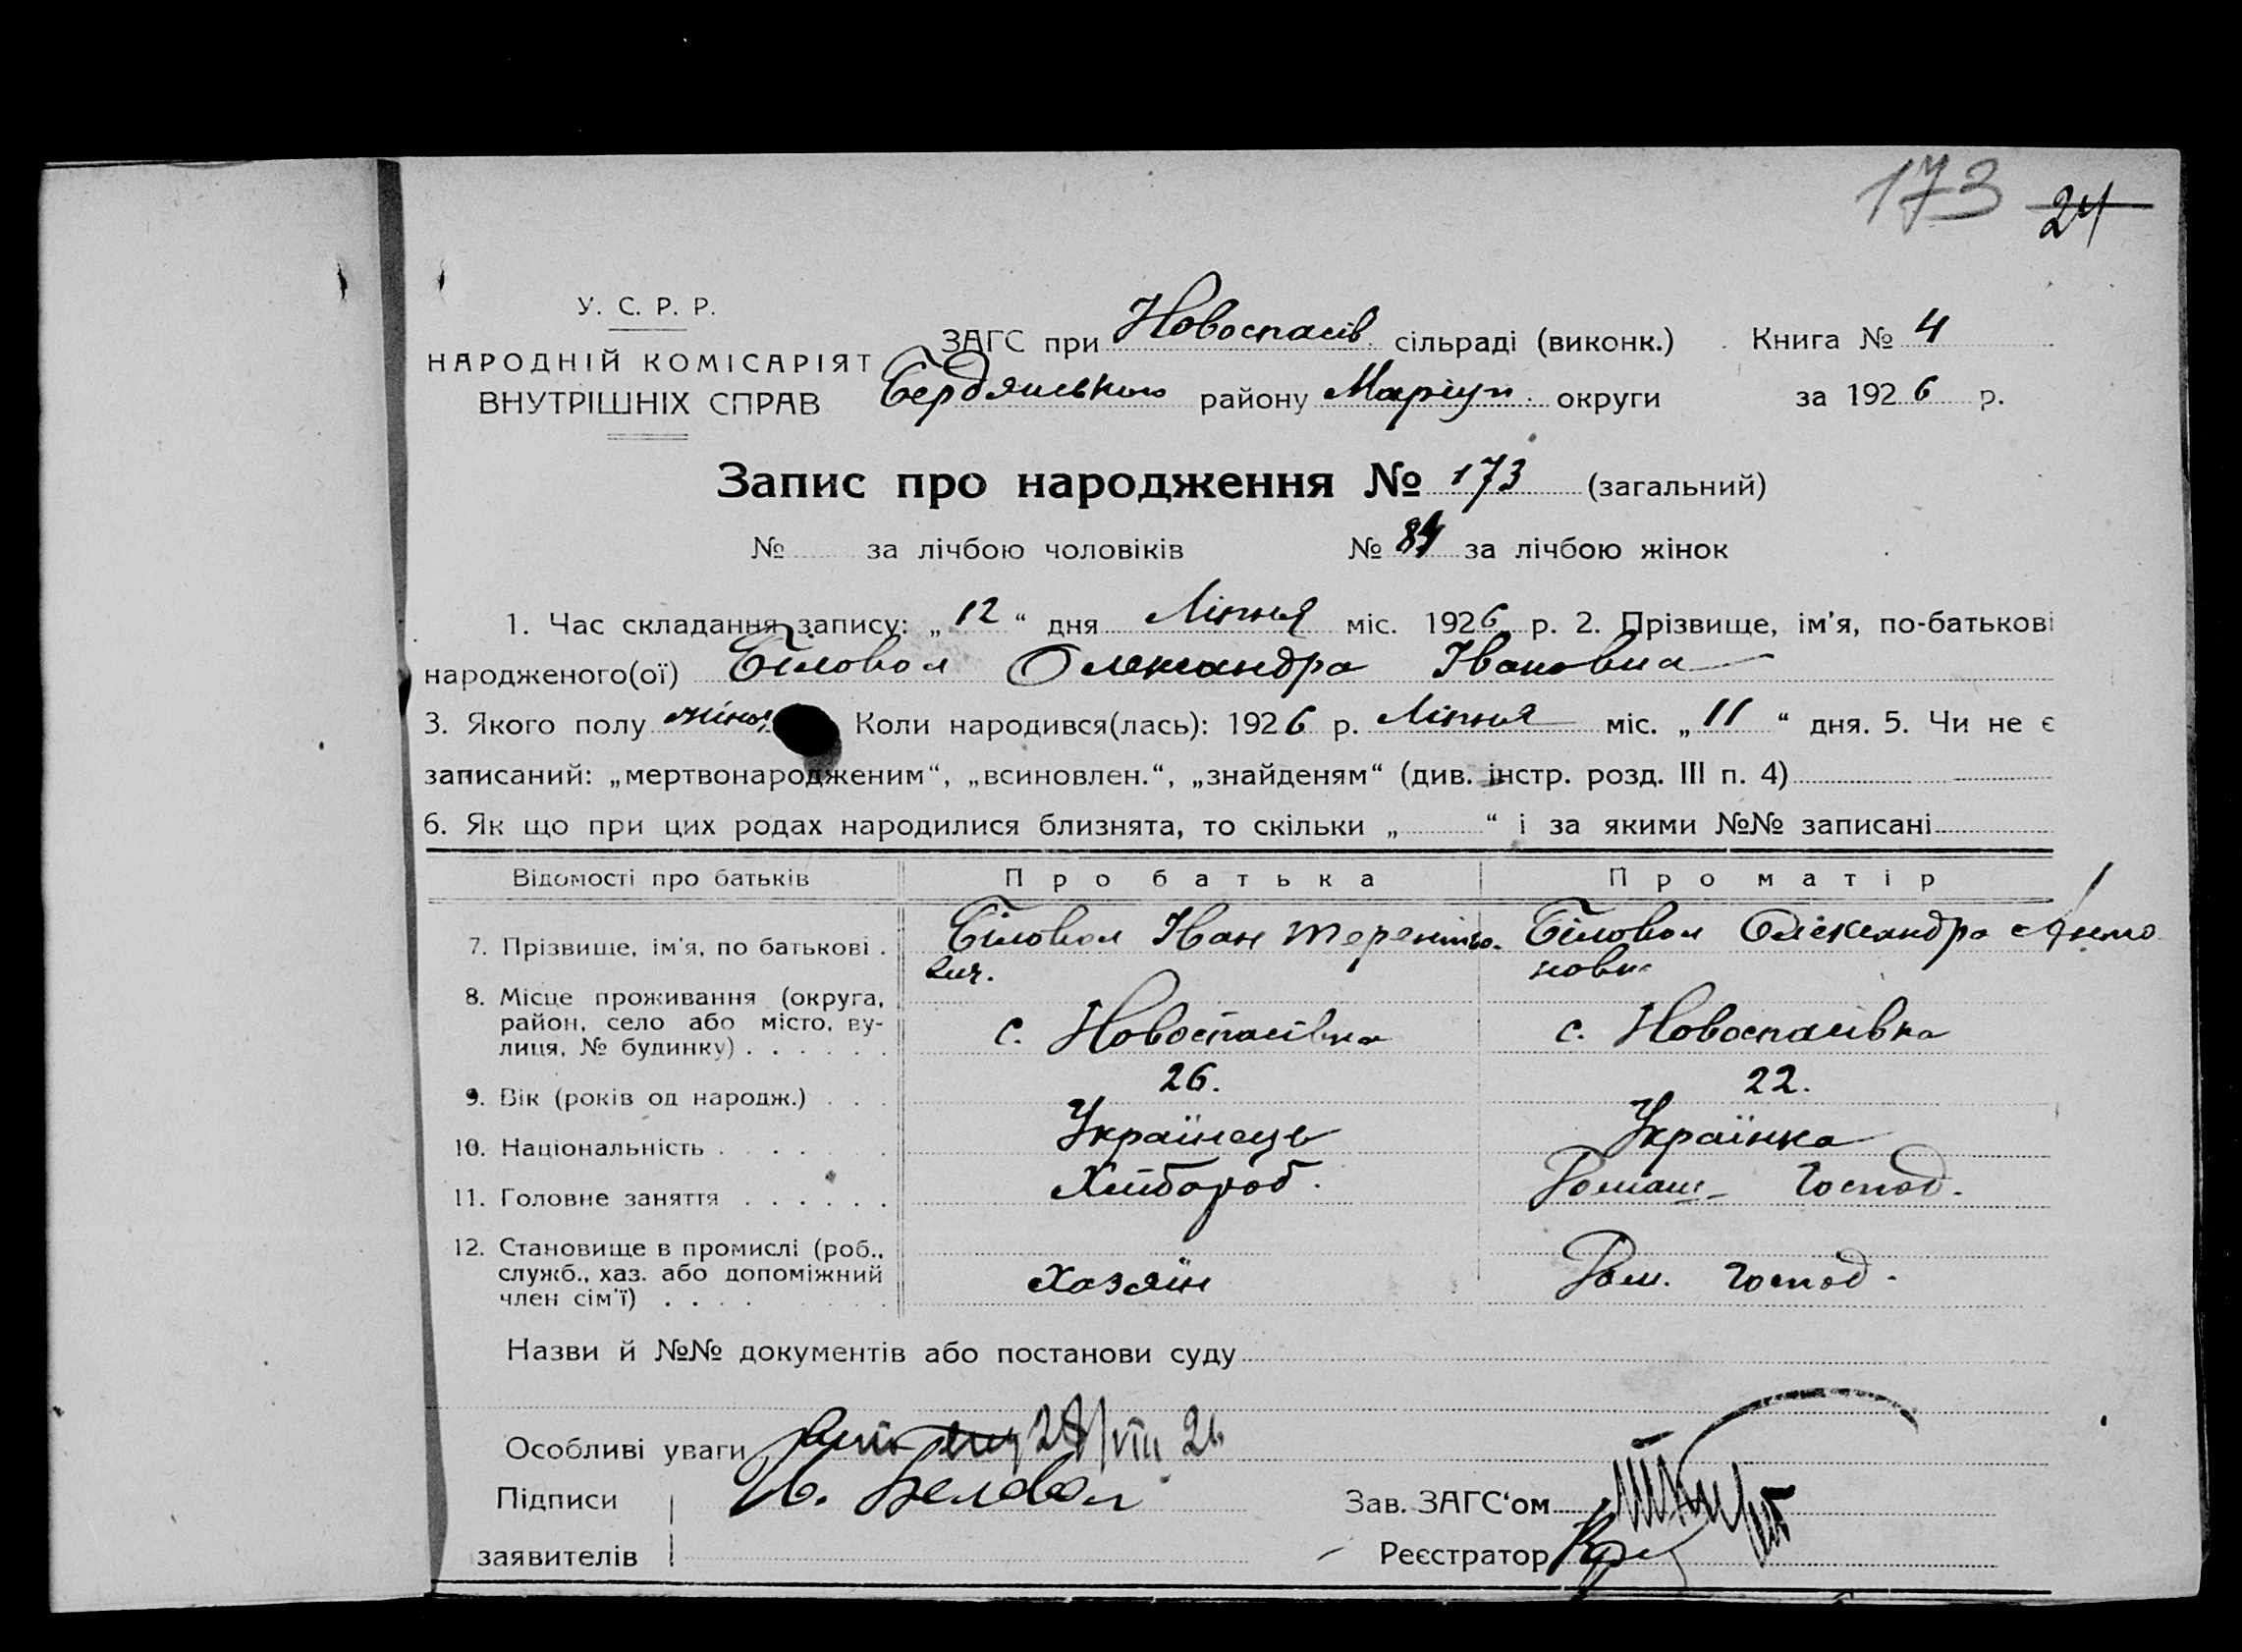 173 24
У. С. Р. Р.
НАРОДНІЙ КОМІСАРІЯТ
ВНУТРІШНІХ СПРАВ
ЗАГС при Новоспасів. сільраді (виконк.) Книга № 4
Бердянського району Маріуп. округи за 1926 р.
Запис про народження № 173 (загальний)
№ за лічбою чоловіків № 84 за лічбою жінок
1. Час складання запису: „12“ дня Липня міс. 1926 р. 2. Прізвище, ім'я, по-батькові
народженого(ої) Біловол Олександра Івановна
3. Якого полу жіноч Коли народився(лась): 1926 р. Липня міс. „11“ дня. 5. Чи не є
записаний: „мертвонародженим“, „всиновлен.“, „знайденям“ (див. інстр. розд. III п. 4)
6. Як що при цих родах народилися близнята, то скільки „ “ і за якими №№ записані
Відомості про батьків Про батька Про матір
7. Прізвище, ім'я, по батькові . Біловол Иван Терентіо- Біловол Олександра Анто
вич. новн
8. Місце проживання (округа,
район, село або місто, ву-
лиця, № будинку) . . . . . . с. Новоспасівка с. Новоспасівка
9. Вік (років од народж.) . . . 26. 22.
10. Національність . . . . . . Українець Українка
11. Головне заняття . . . . . . Хлібороб. Домаш- Господ.
12. Становище в промислі (роб.,
служб., хаз. або допоміжний
член сім'ї) . . . . Хазяїн Дом. Господ.
Назви й №№ документів або постанови суду
Особливі уваги 28/VIII 26
Підписи Ив. Беловол Зав. ЗАГС'ом
заявителів Реєстратор